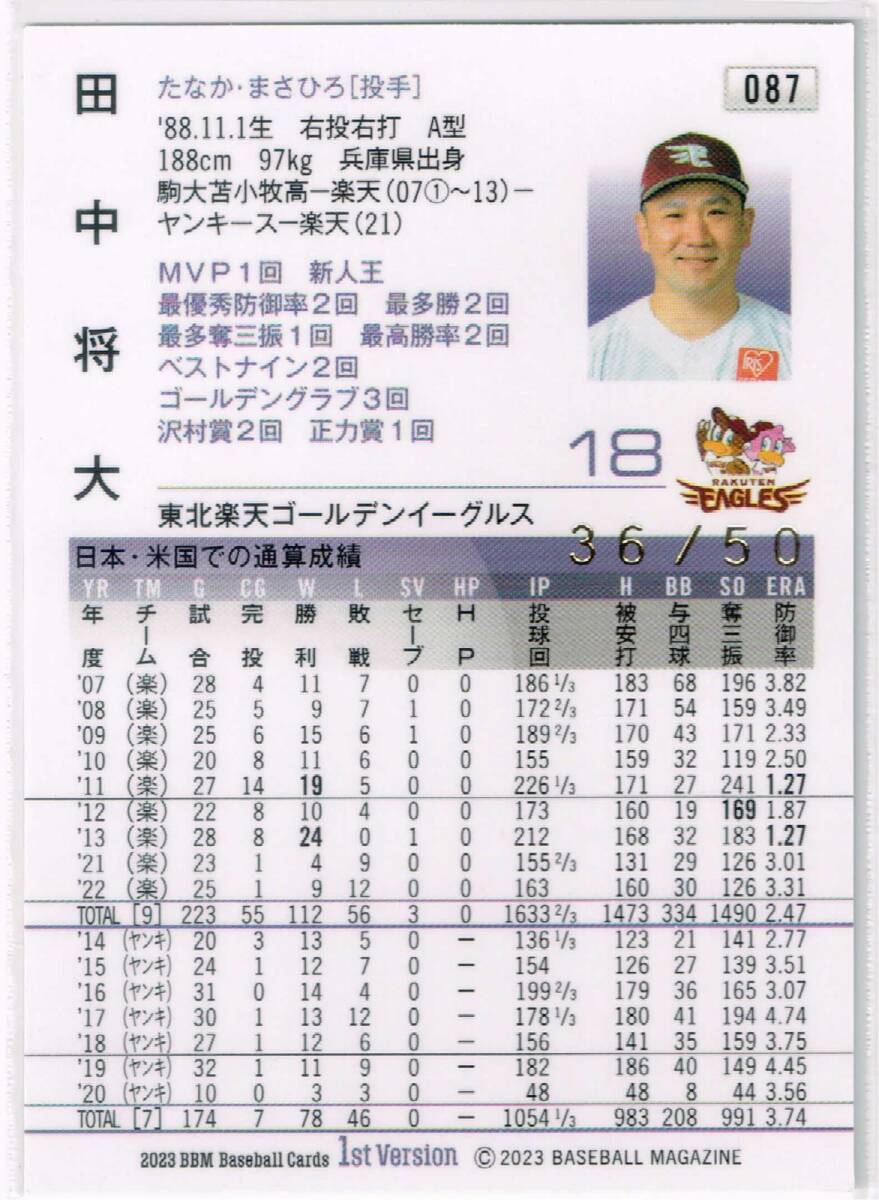 田中将大
たなか・まさひろ[投手]
087
'88.11.1生 右投右打 A型
188cm 97kg 兵庫県出身
駒大苫小牧高ー楽天(07①〜13)ー
ヤンキースー楽天(21)
MVP1回 新人王
最優秀防御率2回 最多勝2回
最多奪三振1回 最高勝率2回
ベストナイン2回
ゴールデングラブ3回
沢村賞2回 正力賞1回
IRIS
18
RAKUTEN
EAGLES
東北楽天ゴールデンイーグルス
36/50
日本・米国での通算成績
YR TM G CG W L SV HP IP H BB SO ERA
年度 チーム 試合 完投 勝利 敗戦 セーブ HP 投球回 被安打 与四球 奪三振 防御率
'07 (楽) 28 4 11 7 0 0 186 1/3 183 68 196 3.82
'08 (楽) 25 5 9 7 1 0 172 2/3 171 54 159 3.49
'09 (楽) 25 6 15 6 1 0 189 2/3 170 43 171 2.33
'10 (楽) 20 8 11 6 0 0 155 159 32 119 2.50
'11 (楽) 27 14 19 5 0 0 226 1/3 171 27 241 1.27
'12 (楽) 22 8 10 4 0 0 173 160 19 169 1.87
'13 (楽) 28 8 24 0 1 0 212 168 32 183 1.27
'21 (楽) 23 1 4 9 0 0 155 2/3 131 29 126 3.01
'22 (楽) 25 1 9 12 0 0 163 160 30 126 3.31
TOTAL [9] 223 55 112 56 3 0 1633 2/3 1473 334 1490 2.47
'14 (ヤンキ) 20 3 13 5 0 ー 136 1/3 123 21 141 2.77
'15 (ヤンキ) 24 1 12 7 0 ー 154 126 27 139 3.51
'16 (ヤンキ) 31 0 14 4 0 ー 199 2/3 179 36 165 3.07
'17 (ヤンキ) 30 1 13 12 0 ー 178 1/3 180 41 194 4.74
'18 (ヤンキ) 27 1 12 6 0 ー 156 141 35 159 3.75
'19 (ヤンキ) 32 1 11 9 0 ー 182 186 40 149 4.45
'20 (ヤンキ) 10 0 3 3 0 ー 48 48 8 44 3.56
TOTAL [7] 174 7 78 46 0 ー 1054 1/3 983 208 991 3.74
2023 BBM Baseball Cards 1st Version ©2023 BASEBALL MAGAZINE